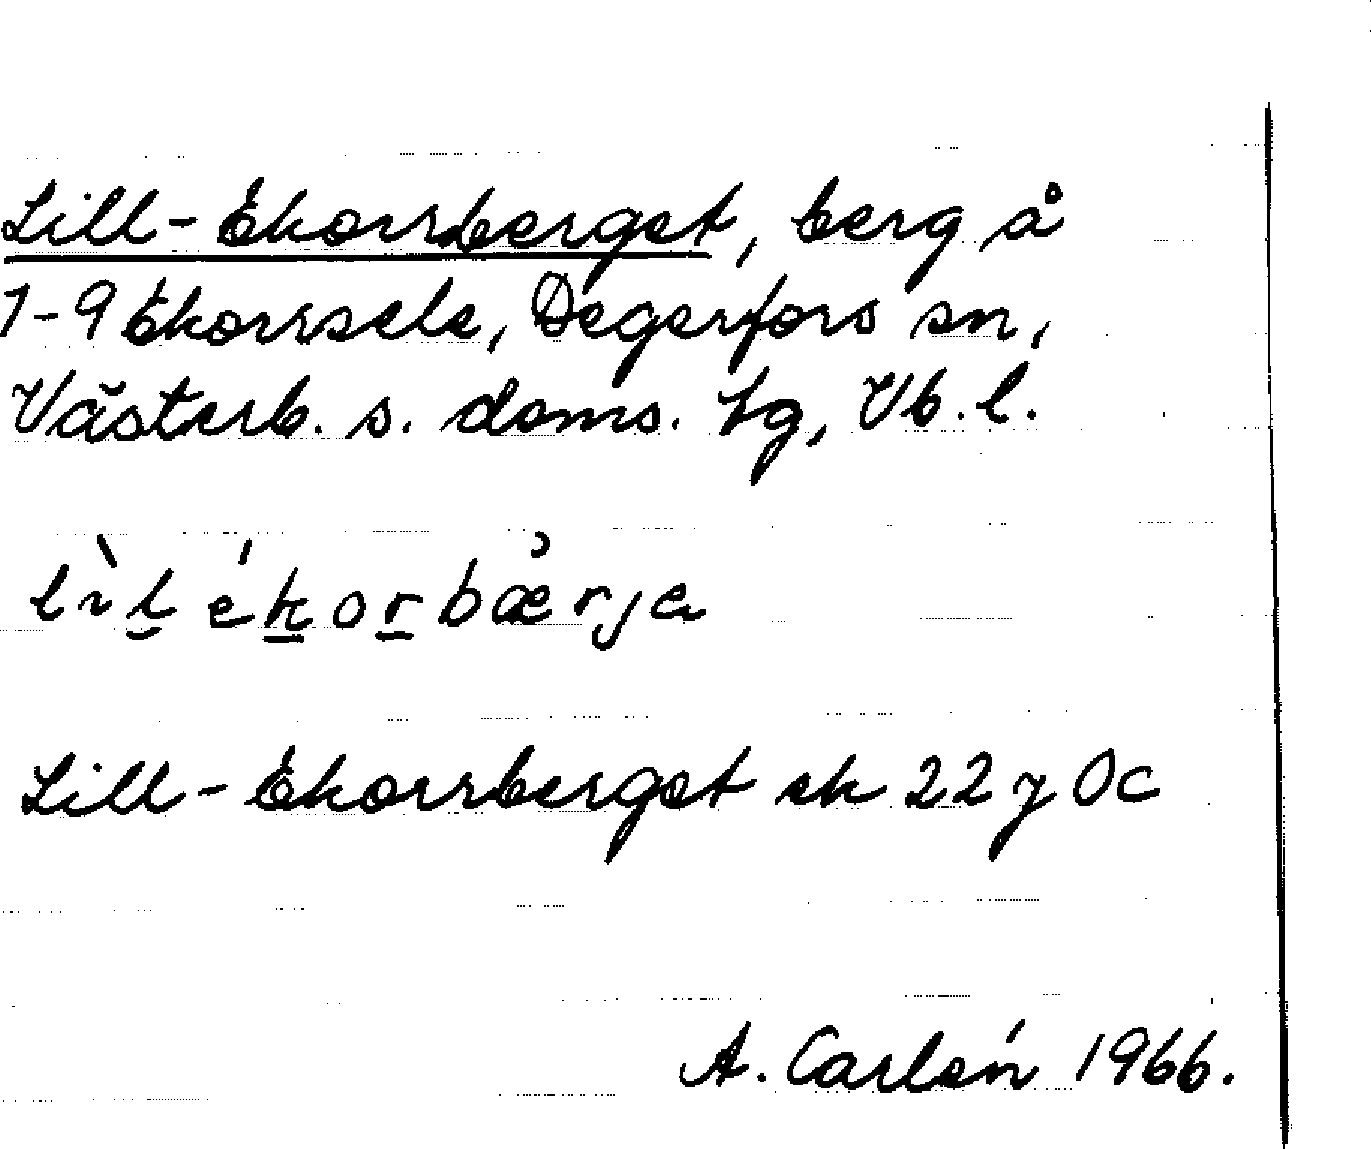 Lill-Ekorrberget, berg å
1-9 Ekorrsele, Degerfors sn,
Västerb. s. doms. tg, Vb. l.
lìl ékorbærja
Lill-Ekorrberget ek 22 7 0c
A. Carlén 1966.